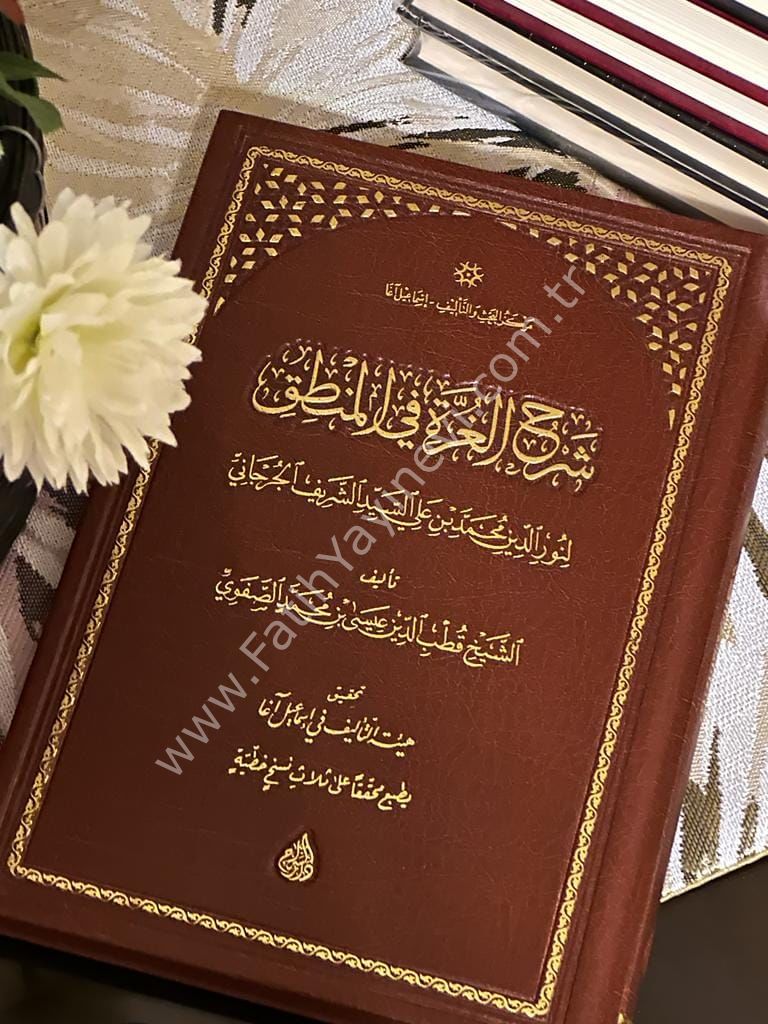 مركز البحث والتأليف - إسماعيل آغا
شَرْحُ الغُرَّة فِي المَنْطِق
لِنُورِ الدِّين مُحَمَّد بْن عَلي السَّيِّد الشَّرِيف الجُرْجَانيّ
تأليف
الشَّيْخ قُطْب الدِّين عِيسَى بْن مُحَمَّد الصَّفَوِيّ
تحقيق
هيئة التأليف في إسماعيل آغا
يطبع محققًا على ثلاث نسخ خطّيّة
دار السراج
www.FatihYayinevi.com.tr